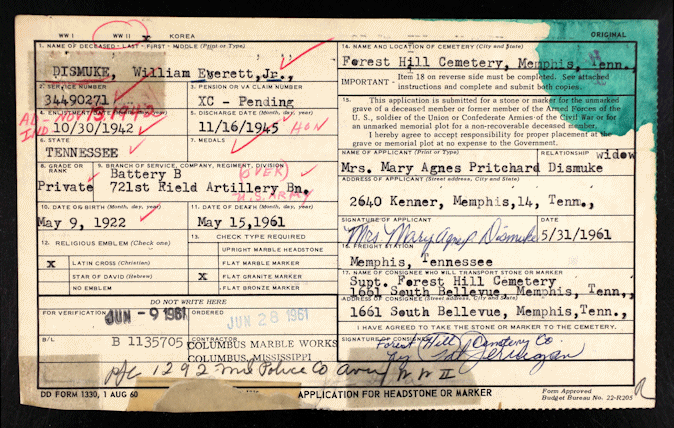 WW I WW II x KOREA ORIGINAL
1. NAME OF DECEASED - LAST - FIRST - MIDDLE (Print or Type)
DISMUKE, William Everett, Jr.,
2. SERVICE NUMBER
34490271
3. PENSION OR VA CLAIM NUMBER
XC - Pending
4. ENLISTMENT DATE
10/30/1942
5. DISCHARGE DATE (Month, day, year)
11/16/1945 HON
6. STATE
TENNESSEE
7. MEDALS
8. GRADE OR RANK
Private
9. BRANCH OF SERVICE, COMPANY, REGIMENT, DIVISION
Battery B (OVER)
721st Rield Artillery Bn,
U.S. ARMY
10. DATE OF BIRTH (Month, day, year)
May 9, 1922
11. DATE OF DEATH (Month, day, year)
May 15,1961
12. RELIGIOUS EMBLEM (Check one)
X LATIN CROSS (Christian)
STAR OF DAVID (Hebrew)
NO EMBLEM
13. CHECK TYPE REQUIRED
UPRIGHT MARBLE HEADSTONE
FLAT MARBLE MARKER
X FLAT GRANITE MARKER
FLAT BRONZE MARKER
DO NOT WRITE HERE
FOR VERIFICATION
JUN - 9 1961
ORDERED
JUN 28 1961
B/L
B 1135705
CONTRACTOR
COLUMBUS MARBLE WORKS
COLUMBUS, MISSISSIPPI
14. NAME AND LOCATION OF CEMETERY (City and State)
Forest Hill Cemetery, Memphis, Tenn.,
IMPORTANT - Item 18 on reverse side must be completed. See attached
instructions and complete and submit both copies.
15. This application is submitted for a stone or marker for the unmarked
grave of a deceased member or former member of the Armed Forces of the
U. S., soldier of the Union or Confederate Armies of the Civil War or for
an unmarked memorial plot for a non-recoverable deceased member.
I hereby agree to accept responsibility for proper placement at the
grave or memorial plot at no expense to the Government.
NAME OF APPLICANT (Print or Type) RELATIONSHIP widow
Mrs. Mary Agnes Pritchard Dismuke
ADDRESS OF APPLICANT (Street address, City and State)
2640 Kenner, Memphis,14, Tenn.,
SIGNATURE OF APPLICANT DATE
Mrs Mary Agnes Dismuke 5/31/1961
16. FREIGHT STATION
Memphis, Tennessee
17. NAME OF CONSIGNEE WHO WILL TRANSPORT STONE OR MARKER
Supt. Forest Hill Cemetery
1661 South Bellevue, Memphis, Tenn.,
ADDRESS OF CONSIGNEE (Street address, City and State)
1661 South Bellevue, Memphis,Tenn.,
I HAVE AGREED TO TAKE THE STONE OR MARKER TO THE CEMETERY.
SIGNATURE OF CONSIGNEE
Forest Hill Cemetery Co.
1292 WW II
DD FORM 1330, 1 AUG 60
APPLICATION FOR HEADSTONE OR MARKER
Form Approved
Budget Bureau No. 22-R205